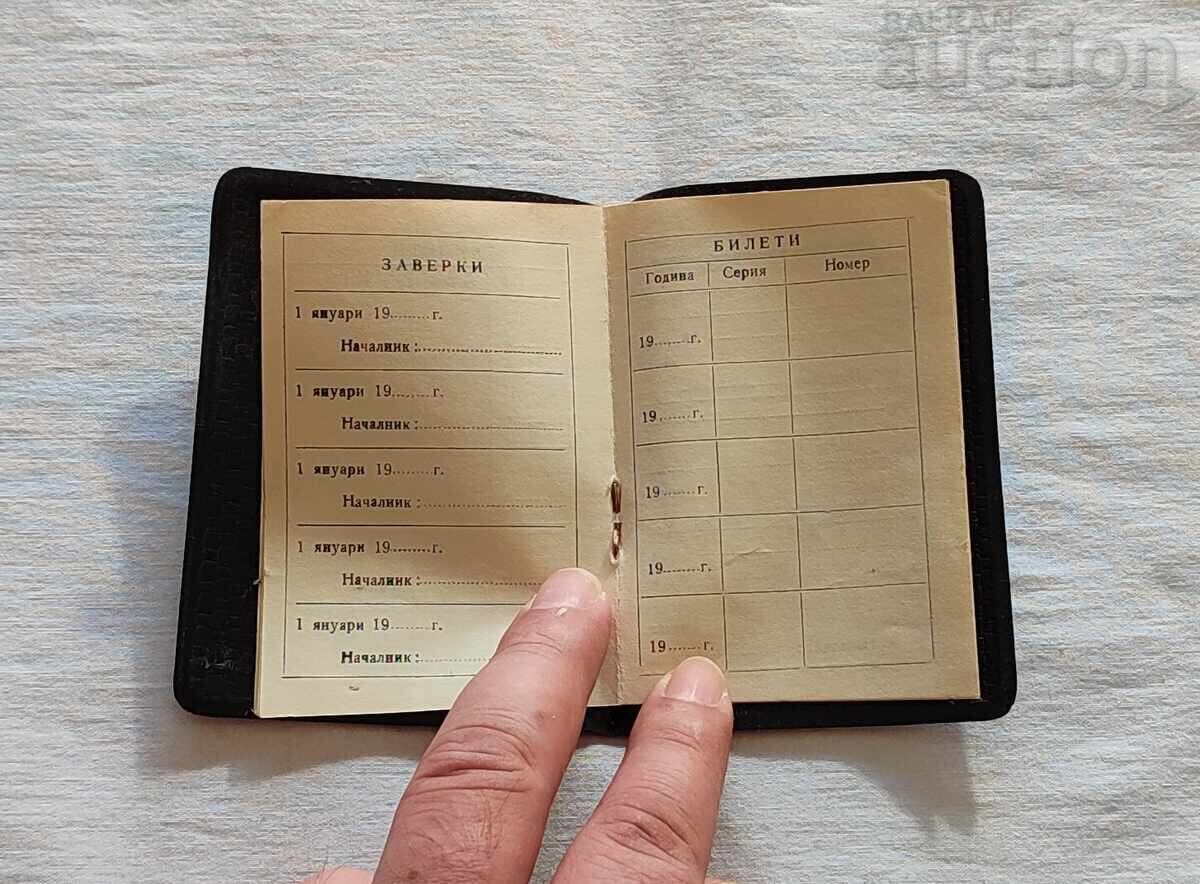 BALKAN
auction
ЗАВЕРКИ
1 януари 19........г.
Началник :
1 януари 19........г.
Началник :
1 януари 19........г.
Началник :
1 януари 19........г.
Началник :
1 януари 19........г.
Началник :
БИЛЕТИ
Година Серия Номер
19.......г.
19.......г.
19.......г.
19.......г.
19.......г.